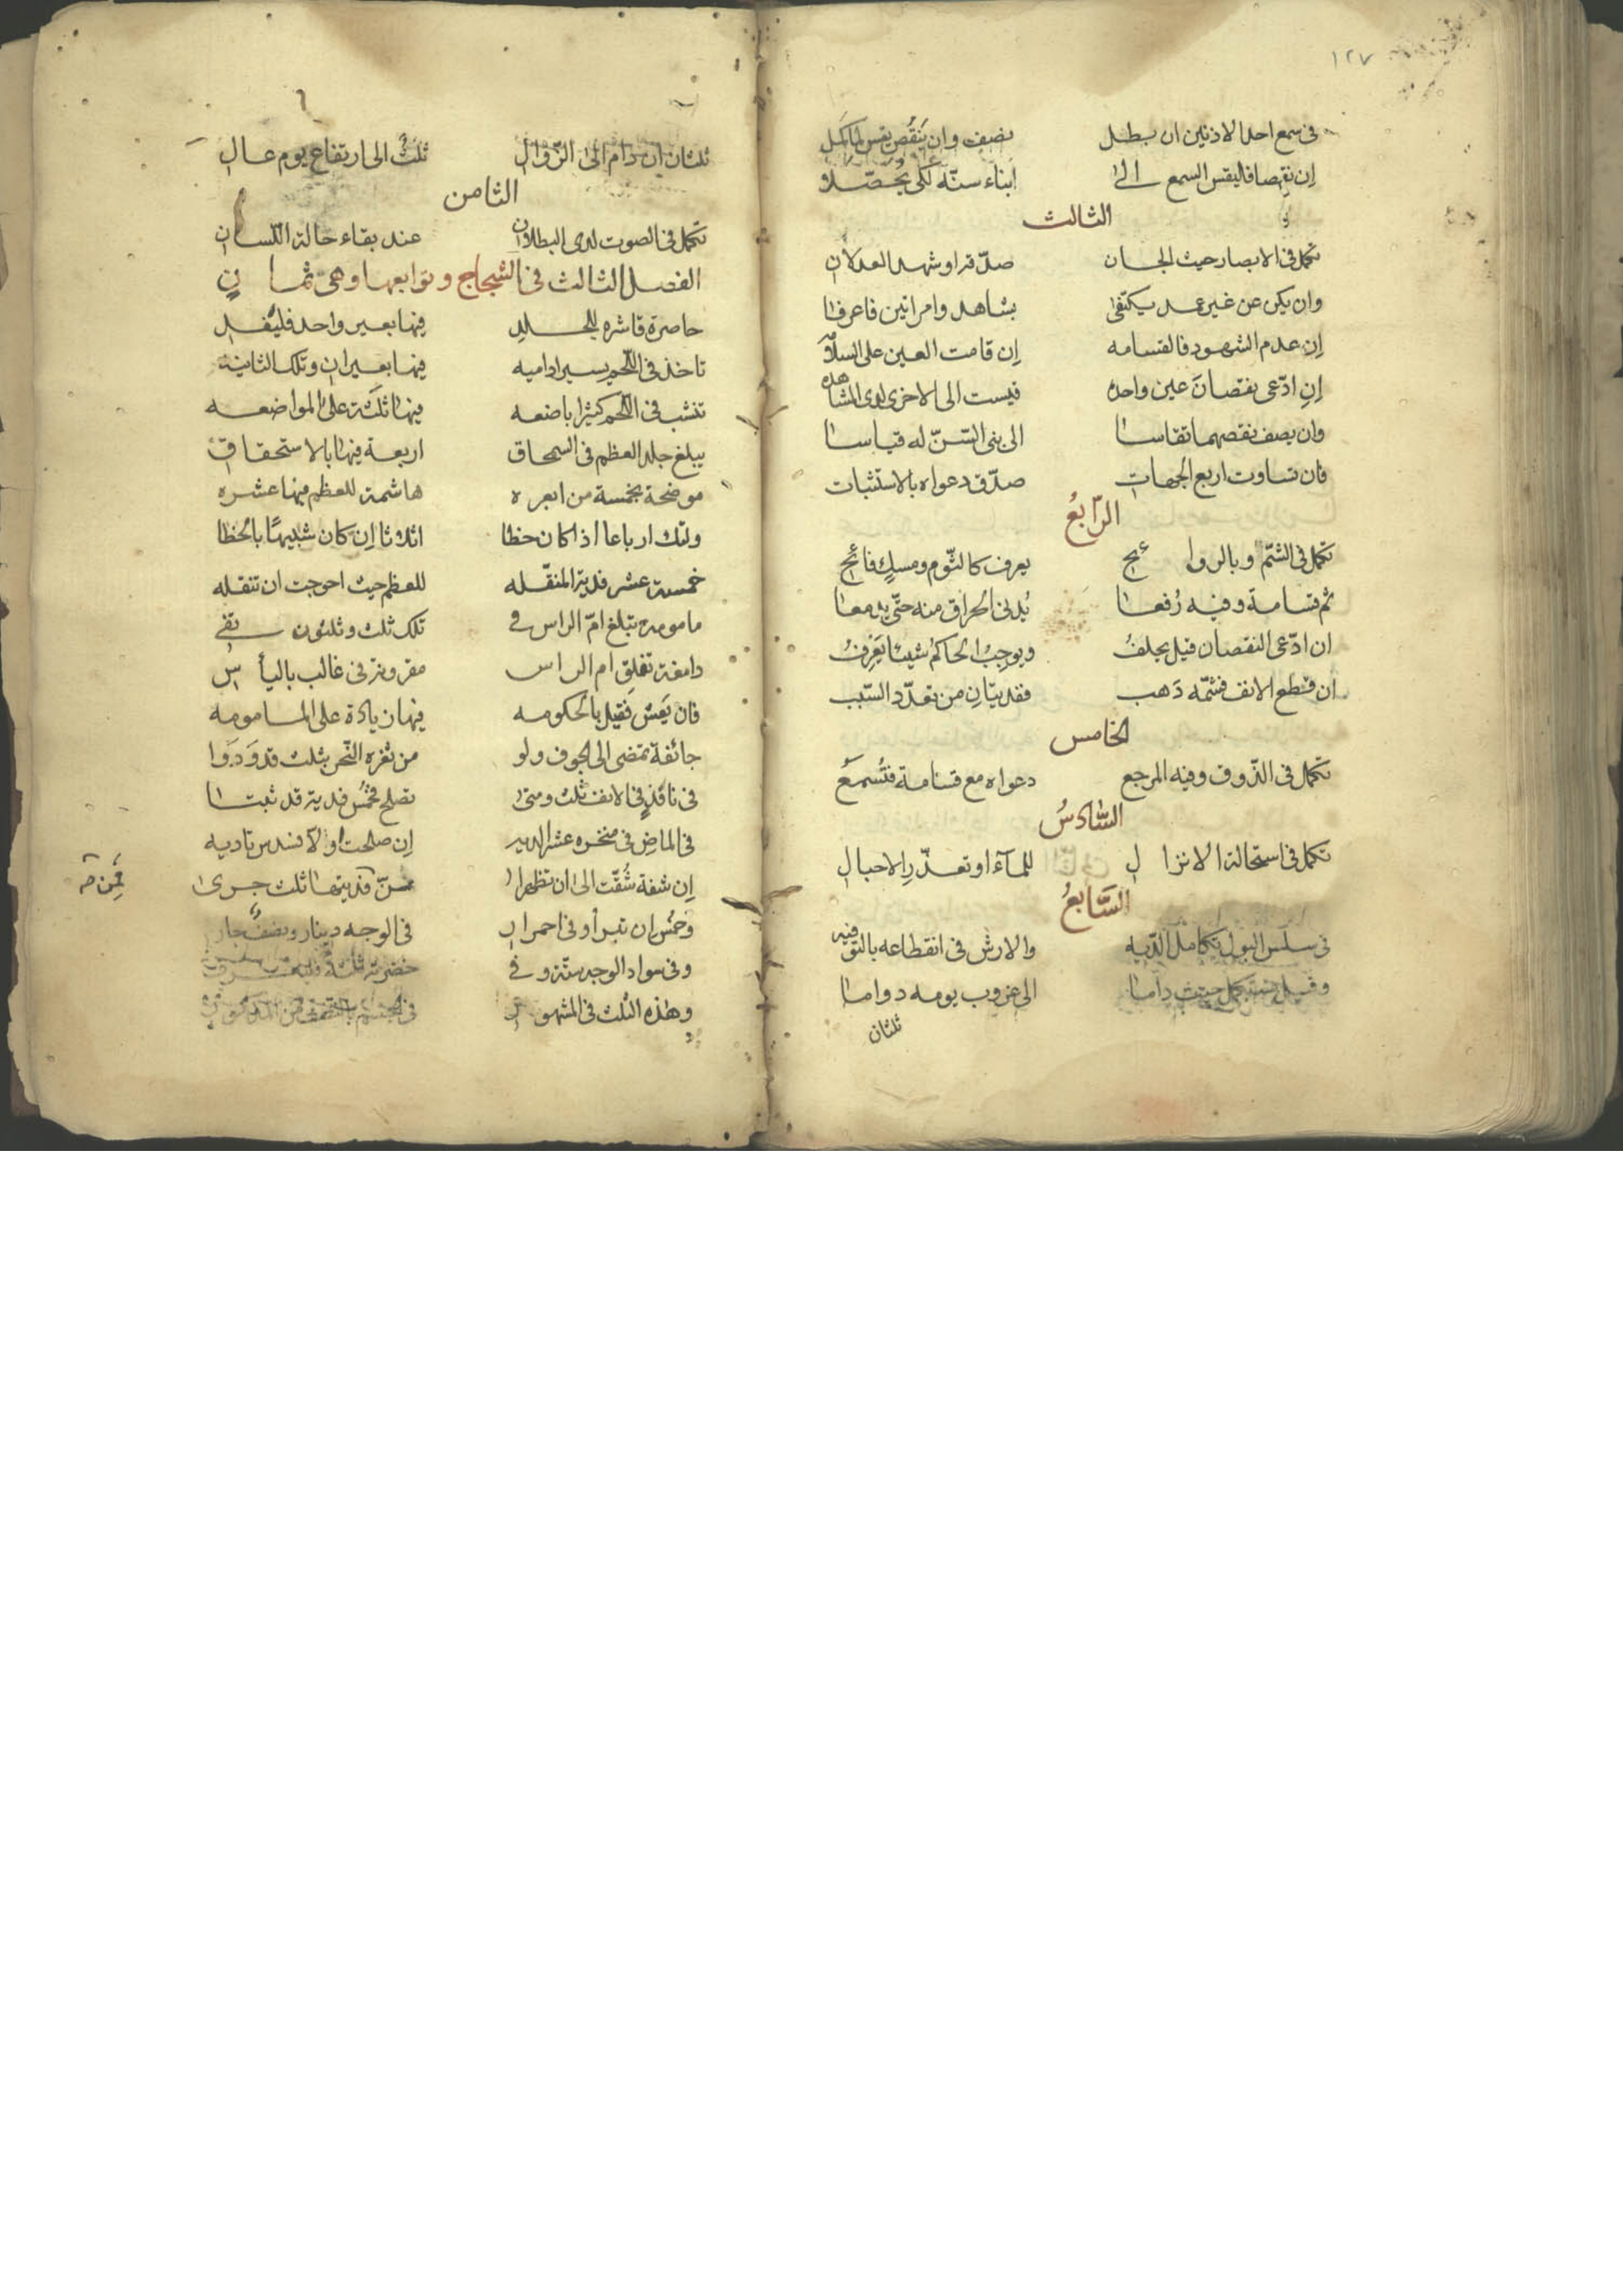 ١٢٧
فى سمع احد الاذنين ان بطل نصف وان ينقص يقس لما كمل
ان نقصا فاليقس السمع الى ابناء سنه لكى يحصلا
الثالث
تكمل فى الابصار حيث الجان صدق او شهد العدلان
وان يكن عن غير عمد يكتفى بشاهد وامراتين فاعرفا
إن عدم الشهود فالقسامه إن قامت العين على السلامه
إن ادّعى نقصان عين واحده قيست الى الاخرى لدى المشاهده
وان يصف نقصهما تقاسا الى بنى السّنّ له قياسا
فان تساوت اربع الجهات صدّق دعواه بالاستثبات
الرّابعُ
تكمل فى الشّم وبالروائح يعرف كالثّوم ومسكٍ فائح
ثم قسامة وفيه رُفعا يُدنى الحراق منه حتّى يدمعا
ان ادّعى النقصان قيل يحلفُ ويوجبُ الحاكم شيئا يَعرفُ
ان قطع الانف فشمّه ذهب فقد يتان من تعدّد السّبب
الخامس
تكمل فى الذّوق وفيه المرجع دعواه مع قسامة فتُسمعُ
السّادسُ
تكمل فى استحالة الانزال للمآء او تعذّر الاحبال
السّابعُ
فى سلس البول بكامل الدّيه والارش فى انقطاعه بالتوفيه
وقيل تكمل حيث داما الى غروب يومه دواما
ثلثان
ثلثان ان دام الى الزّوال ثلث الى ارتفاع يوم عال
الثامن
تكمل فى الصوت لدى البطلان عند بقاء حالة اللسان
الفصل الثالث فى الشجاج وتوابعها وهى ثمان
حاصرة قاشره للجلد فيها بعير واحد فليُفد
تاخذ فى اللّحم يسيرا داميه فيها بعيران وتلك الثانية
تنشب فى اللّحم كثيرا باضعه فيها ثلثة على المواضعه
يبلغ جلد العظم فى السمحاق اربعة فيها بالاستحقاق
موضحة بخمسة من ابعره هاشمة للعظم فيها عشره
وتلك ارباعا اذا كان خطا اثلاثا إن كان شبيها بالخطا
خمسة عشر فدية المنقّله للعظم حيث احوجت ان تنقله
مامومة تبلغ امّ الراس فى تلك ثلث وثلثون تفى
دامغة تفلق ام الراس مقرونة فى غالب بالياس
فان يعش فقيل بالحكومه فيها زيادة على المامومه
جائفة تمضى الى الجوف ولو من ثغره النّحر بثلث قد ودوا
فى نافذٍ فى الانف ثلث ومتى تصلح فخمس فدية قد ثبتا
فى الماض فى منخره عشر الديه إن صلحت او لا فسدس تاديه
إن شفة شُقّت الى ان تظهرا سنّ فديتها ثلث جرى
وخمس ان تبرأ وفى احمرار فى الوجه دينار ونصف جار
وفى سواد الوجه ستة وفى خضرته ثلثة
وهذه الثلث فى المشهور فى الجسم بالنصف من المذكور